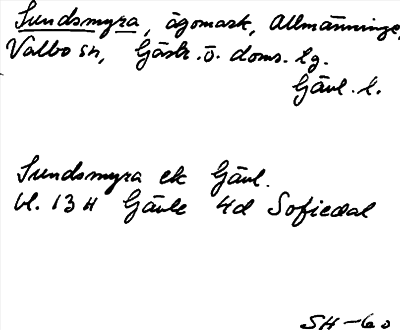 Sundsmyra, ägomark, Allmänninge,
Valbo sn, Gästr. ö. doms. lg.
Gävl. l.
Sundsmyra ek Gävl.
bl. 13 H Gävle 4d Sofiedal
SH-60